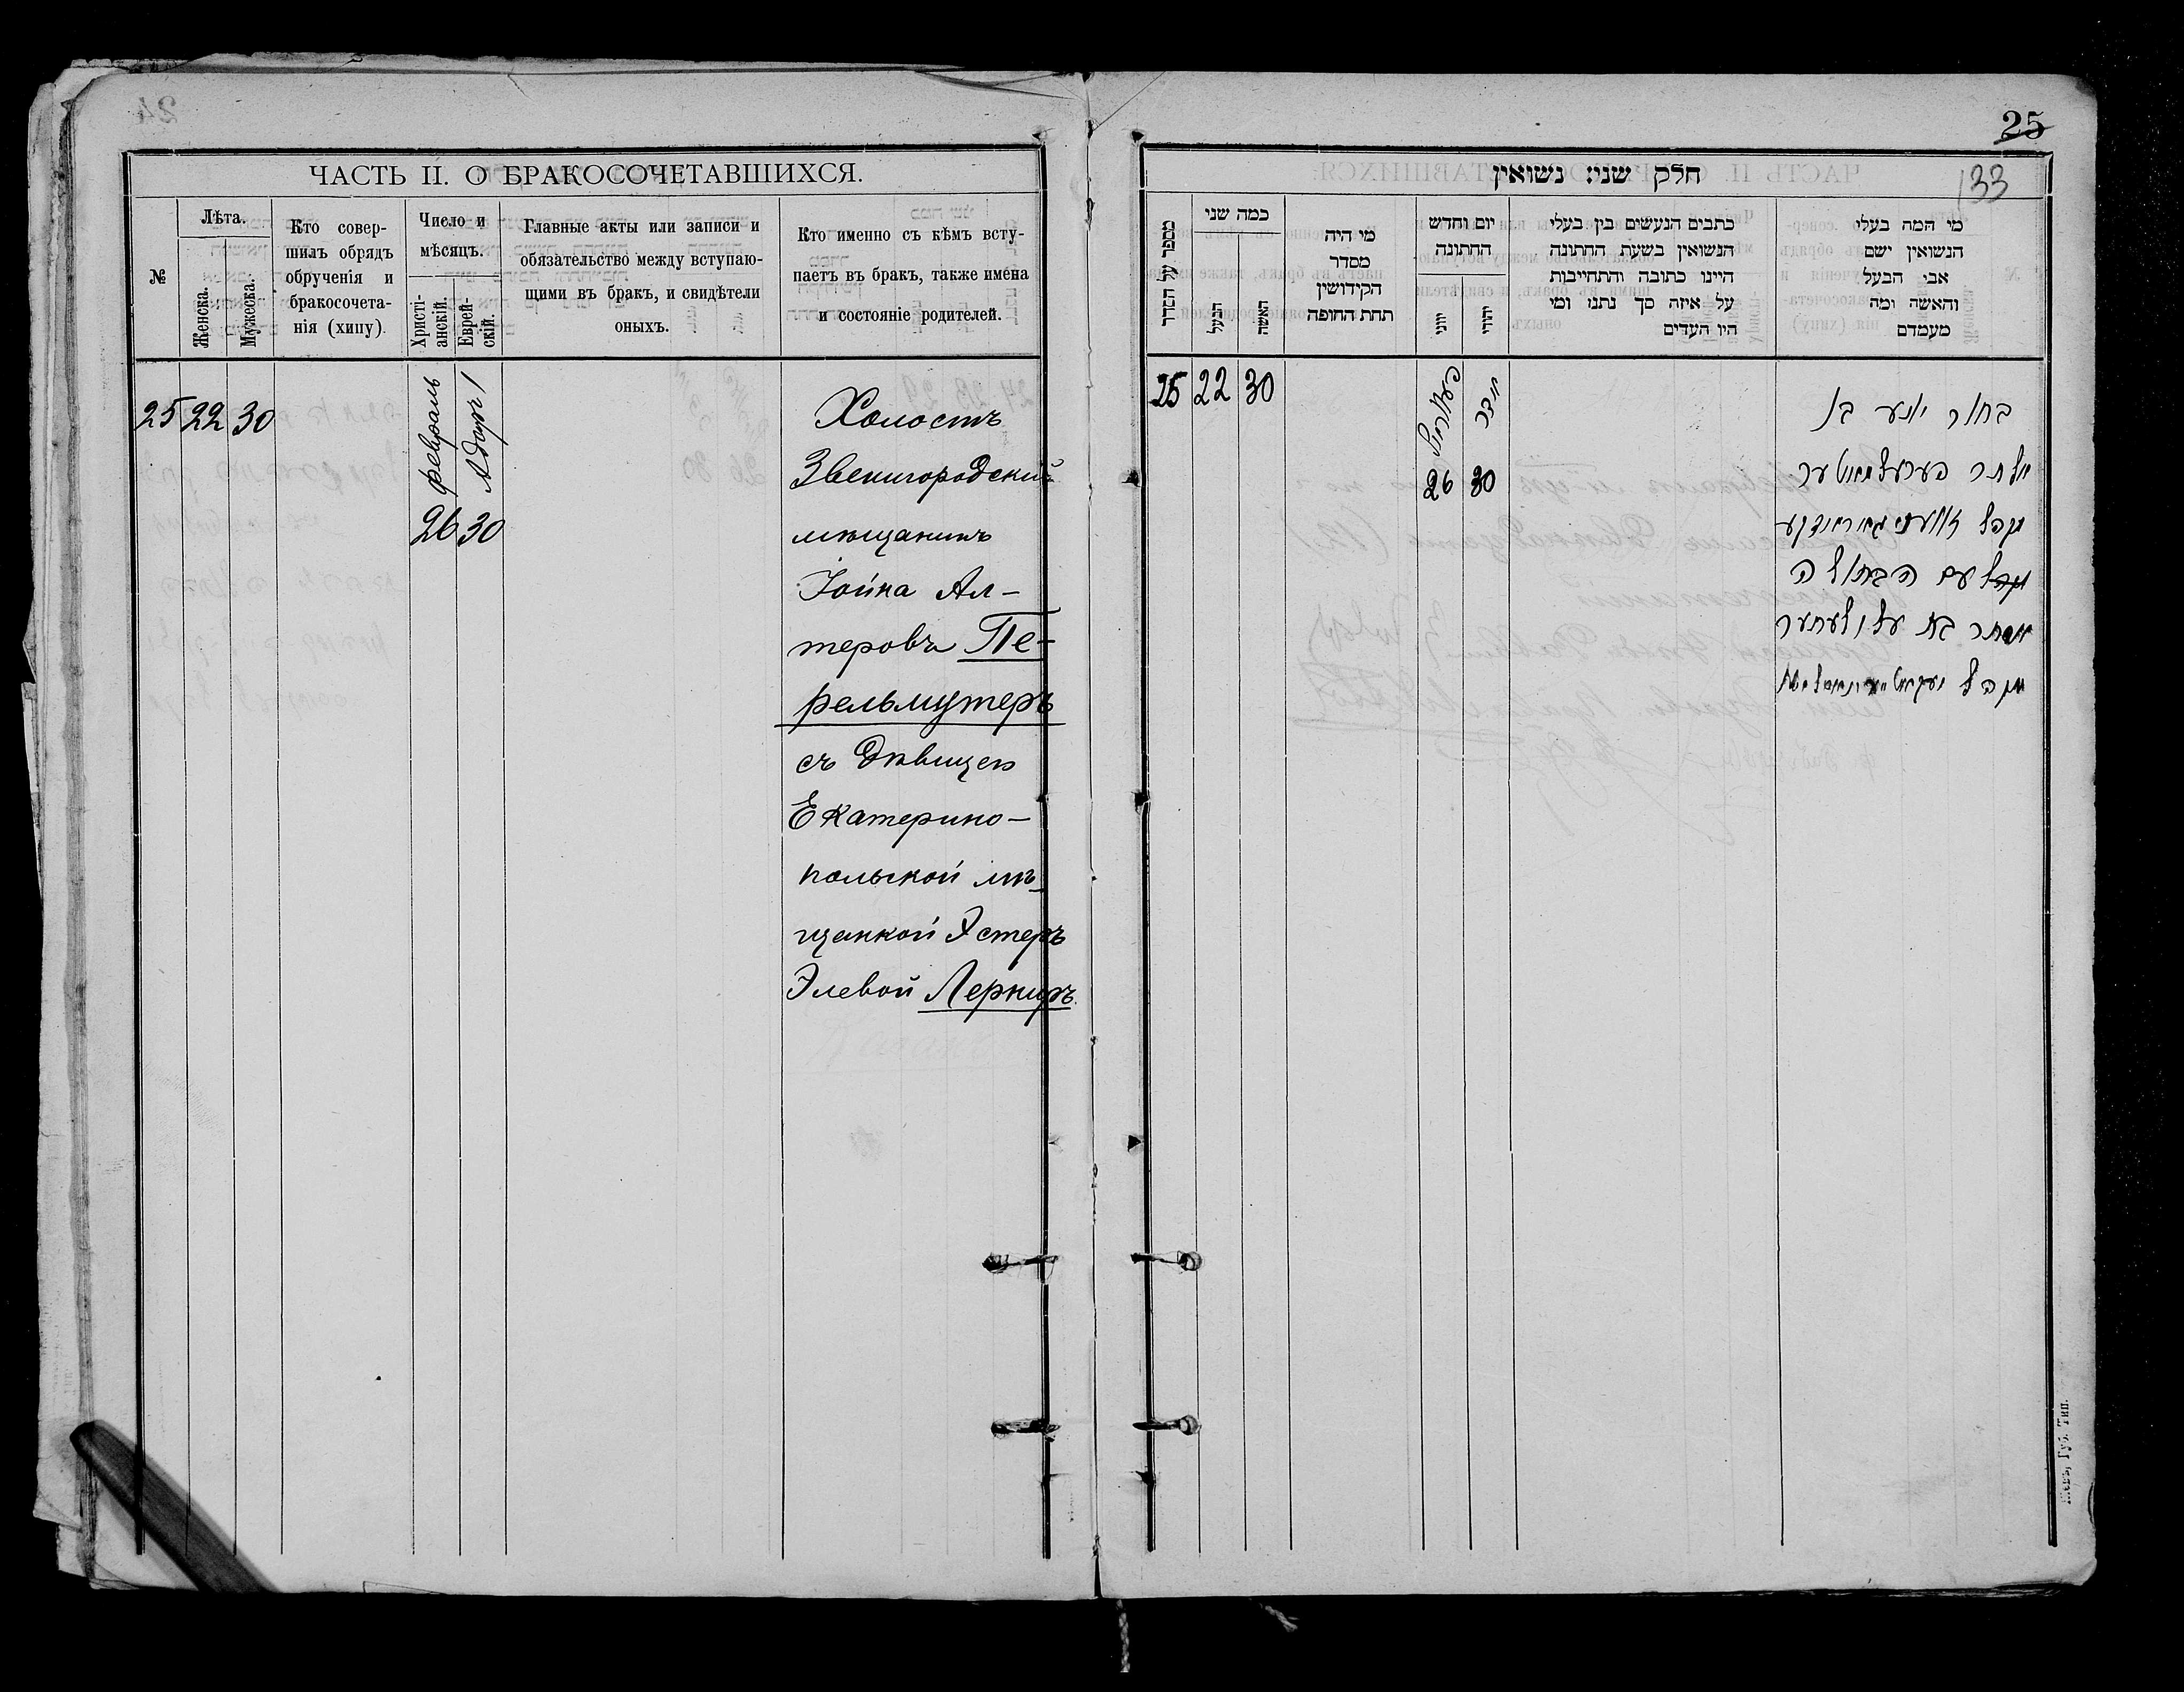 ЧАСТЬ II. О БРАКОСОЧЕТАВШИХСЯ.
№
Лѣта.
Женска.
Мужеска.
Кто совер-
шилъ обрядъ
обрученія и
бракосочета-
нія (хипу).
Число и
мѣсяцъ.
Христі-
анскій.
Еврей-
скій.
Главные акты или записи и
обязательство между вступаю-
щими въ бракъ, и свидѣтели
оныхъ.
Кто именно съ кѣмъ всту-
паетъ въ бракъ, также имена
и состояніе родителей.
25 22 30
февраль
Адаръ 1
26 30
Холостъ
Звенигородскій
мѣщанинъ
Іойна Ал-
теровъ Пе-
рельмутеръ
съ дѣвицею
Екатерино-
польской мѣ-
щанкой Эстеръ
Элевой Лернеръ.
25
133
חלק שני: נשואין
מספר על הסדר
כמה שני
הבעל
האשה
מי היה
מסדר
הקידושין
תחת החופה
יום וחדש
החתונה
יוני
יהודי
כתבים הנעשים בין בעלי
הנשואין בשעת החתונה
היינו כתובה והתחייבות
על איזה סך נתנו ומי
היו העדים
מי המה בעלי
הנשואין ישם
אבי הבעל
והאשה ומה
מעמדם
25 22 30
26 30
אדר
בחור יונע בן
אלתר פערעלמוטער
מקהל
עם הבתולה
אסתר בת
מקהל
Губ. Тип.